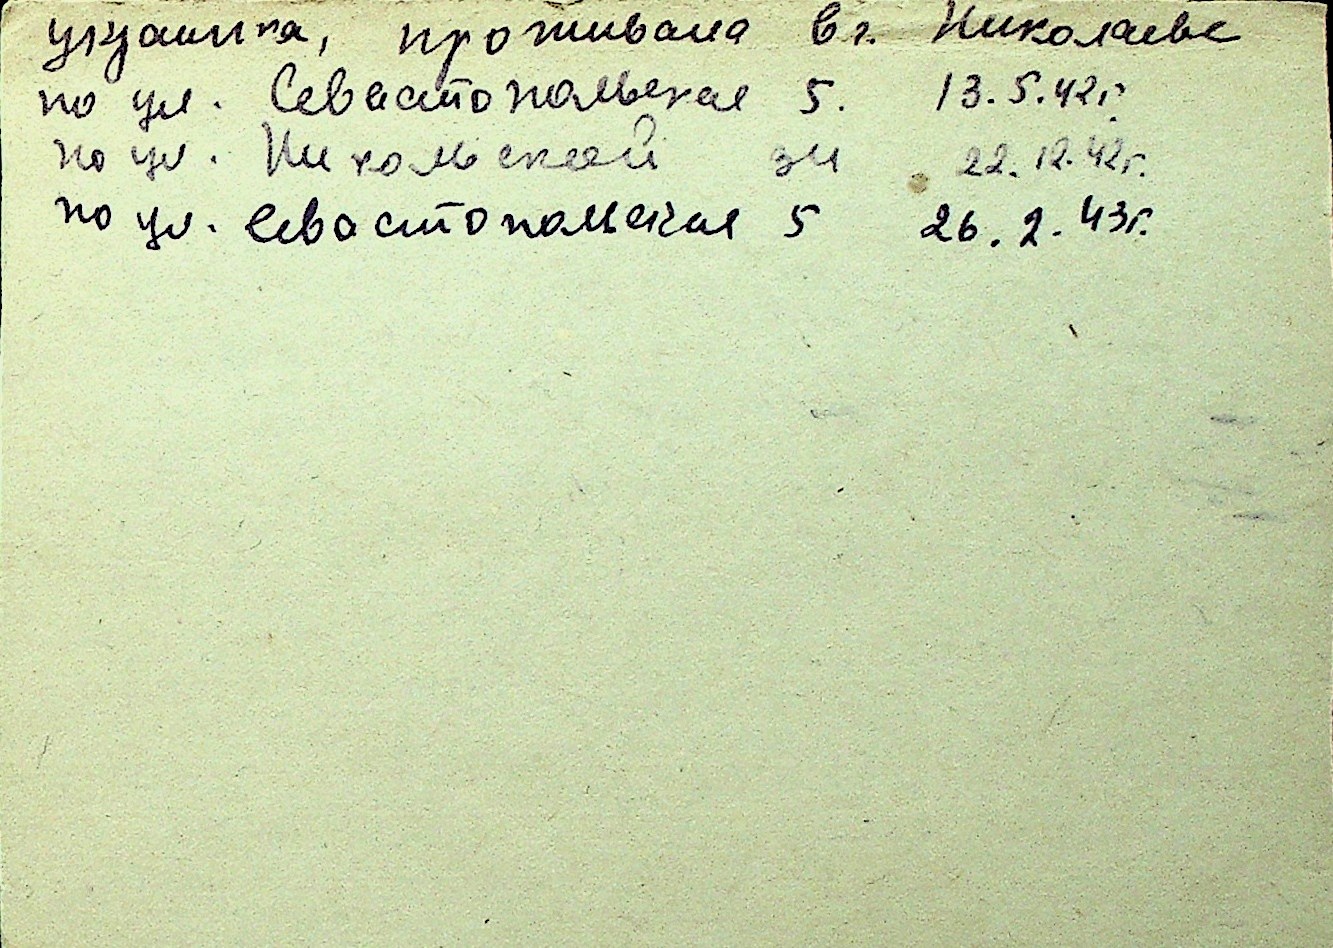 украинка, проживала в г. Николаеве
по ул. Севастопольская 5. 13.5.42г.
по ул. Никольской 34 22.12.42г.
по ул. Севастопольская 5 26.2.43г.